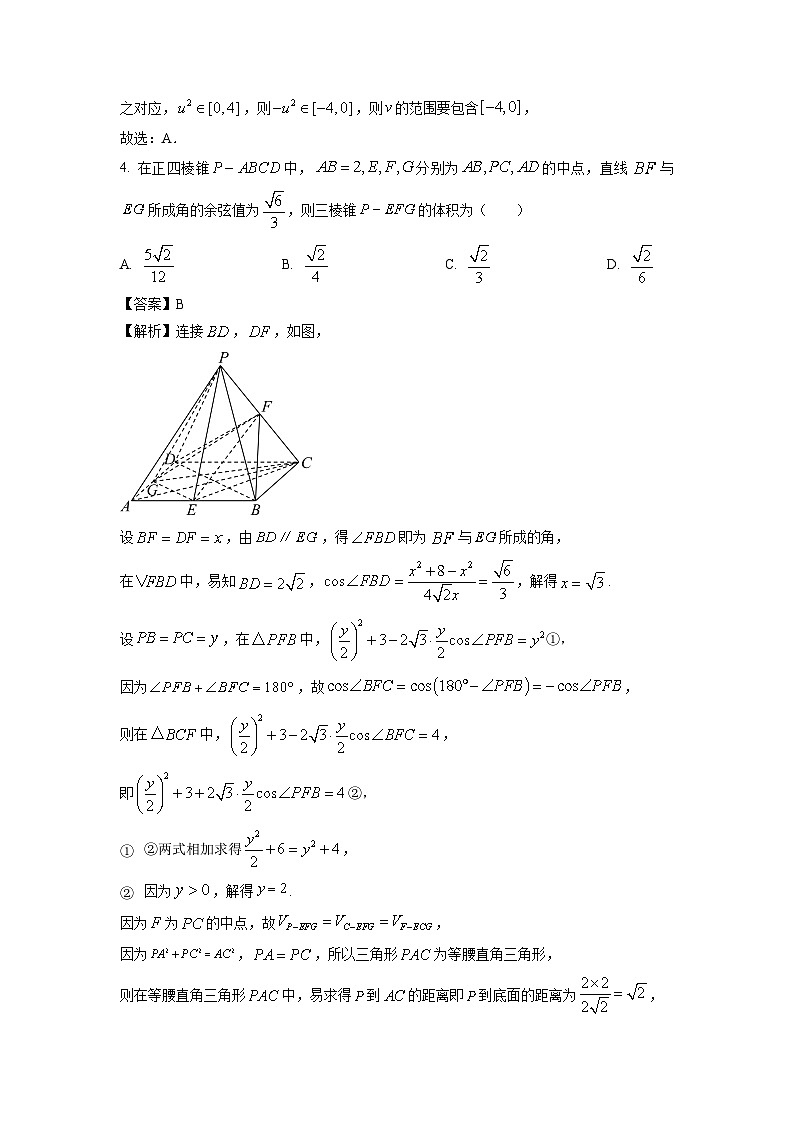 之对应，u² ∈ [0, 4]，则 −u² ∈ [−4, 0]，则 v 的范围要包含 [−4, 0]，
故选：A．
4. 在正四棱锥 P − ABCD 中， AB = 2, E, F, G 分别为 AB, PC, AD 的中点，直线 BF 与
EG 所成角的余弦值为 √6/3，则三棱锥 P − EFG 的体积为（　　）
A. 5√2/12 B. √2/4 C. √2/3 D. √2/6
【答案】B
【解析】连接 BD， DF，如图，
P
F
D
C
G
A E B
设 BF = DF = x，由 BD // EG，得 ∠FBD 即为 BF 与 EG 所成的角，
在 ▽FBD 中，易知 BD = 2√2， cos∠FBD = (x² + 8 − x²)/(4√2x) = √6/3，解得 x = √3．
设 PB = PC = y，在 △PFB 中，(y/2)² + 3 − 2√3 · y/2 cos∠PFB = y² ①，
因为 ∠PFB + ∠BFC = 180°，故 cos∠BFC = cos(180° − ∠PFB) = −cos∠PFB，
则在 △BCF 中，(y/2)² + 3 − 2√3 · y/2 cos∠BFC = 4，
即 (y/2)² + 3 + 2√3 · y/2 cos∠PFB = 4 ②，
① ②两式相加求得 y²/2 + 6 = y² + 4，
② 因为 y > 0，解得 y = 2．
因为 F 为 PC 的中点，故 V_{P−EFG} = V_{C−EFG} = V_{F−ECG}，
因为 PA² + PC² = AC²， PA = PC，所以三角形 PAC 为等腰直角三角形，
则在等腰直角三角形 PAC 中，易求得 P 到 AC 的距离即 P 到底面的距离为 (2×2)/(2√2) = √2，